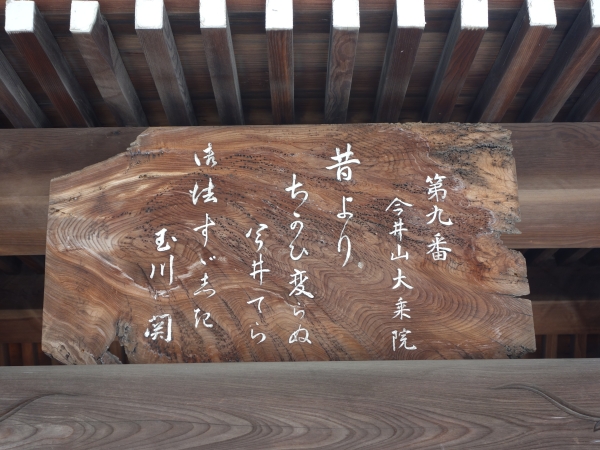 第九番
今井山大乗院
昔より
ちかひ変らぬ
今井てら
法すゞしき
玉川関